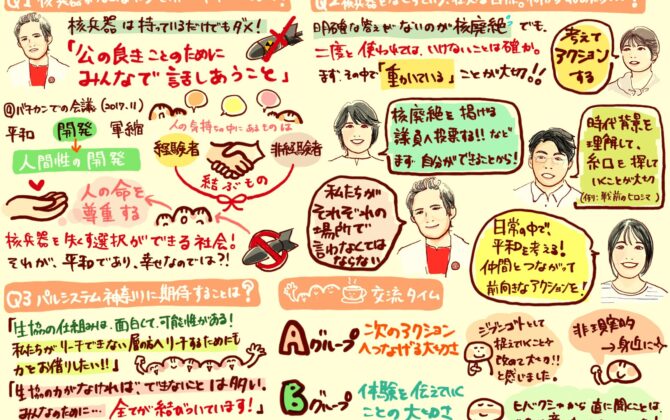 核兵器は持っているだけでもダメ!
「公の良きことのために
みんなで話しあうこと」
@バチカンでの会議 (2017.11)
平和 開発 軍縮
人間性の開発
人の気持ちの中にあるものは
経験者
非経験者
結ぶもの
人の命を
尊重する
核兵器を失くす選択ができる社会!
それが、平和であり、幸せなのでは?!
明確な答えがないのが核廃絶でも、
二度と使われては、いけないことは確か。
まず、その中で「動いている」ことが大切!!
考えて
アクション
する
核廃絶を掲げる
議員へ投票する!!など
まず自分ができることから!
時代背景を
理解して、
糸口を探して
いくことが大切
(例:戦前のヒロシマ)
私たちが
それぞれの
場所で
言わなくては
ならない
日常の中で、
平和を考える!
仲間とつながって
前向きなアクションを!
Q3 パルシステム神奈川に期待することは?
「生協の仕組みは、面白くて、可能性がある!
私たちがリーチできない層へリーチするためにも
力をお借りしたい!!」
「生協の力がなければ、できないことは多い。
みんなのために… 全てが結びついています!
交流タイム
Aグループ
次のアクション
へつなげる大切さ
ジブンゴトとして
捉えていくこと
改めて大切!!
と感じました。
非現実的
→身近に
Bグループ
体験を伝えていく
ことの大切さ
ヒバクシャから直に聞くことは